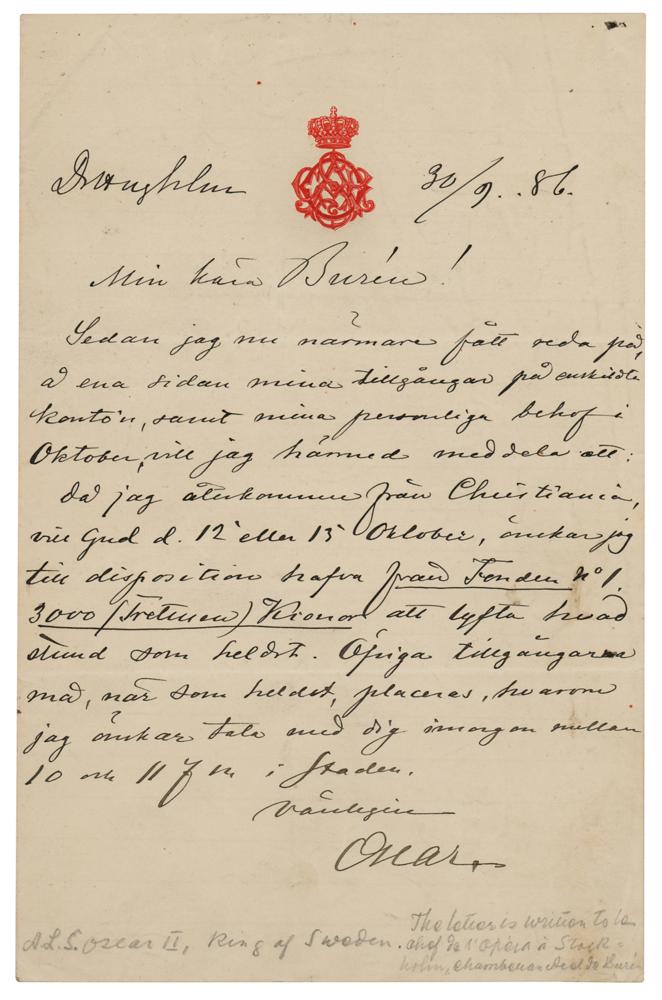 Drottngholm
30/9. 86.
Min kära Burén!
Sedan jag nu närmare fått reda på,
å ena sidan mina tillgångar på enskildta
kontón, samt mina personliga behof i
Oktober, vill jag härmed meddela att:
då jag återkommer från Christiania,
vill Gud d. 12 eller 13 Oktober, önskar jag
till disposition hafva från Fonden No 1.
3000 (Tretusen) Kronor att lyfta hvad
stund som heldst. Öfriga tillgångarna
må, när som heldst, placeras, hvarom
jag önskar tala med dig imorgon mellan
10 och 11 f m i Staden.
Vänligen
Oscar
A.L.S. Oscar II, King of Sweden.
The letter is written to le
chef de l'Opéra à Stock=
holm, Axel de Burén